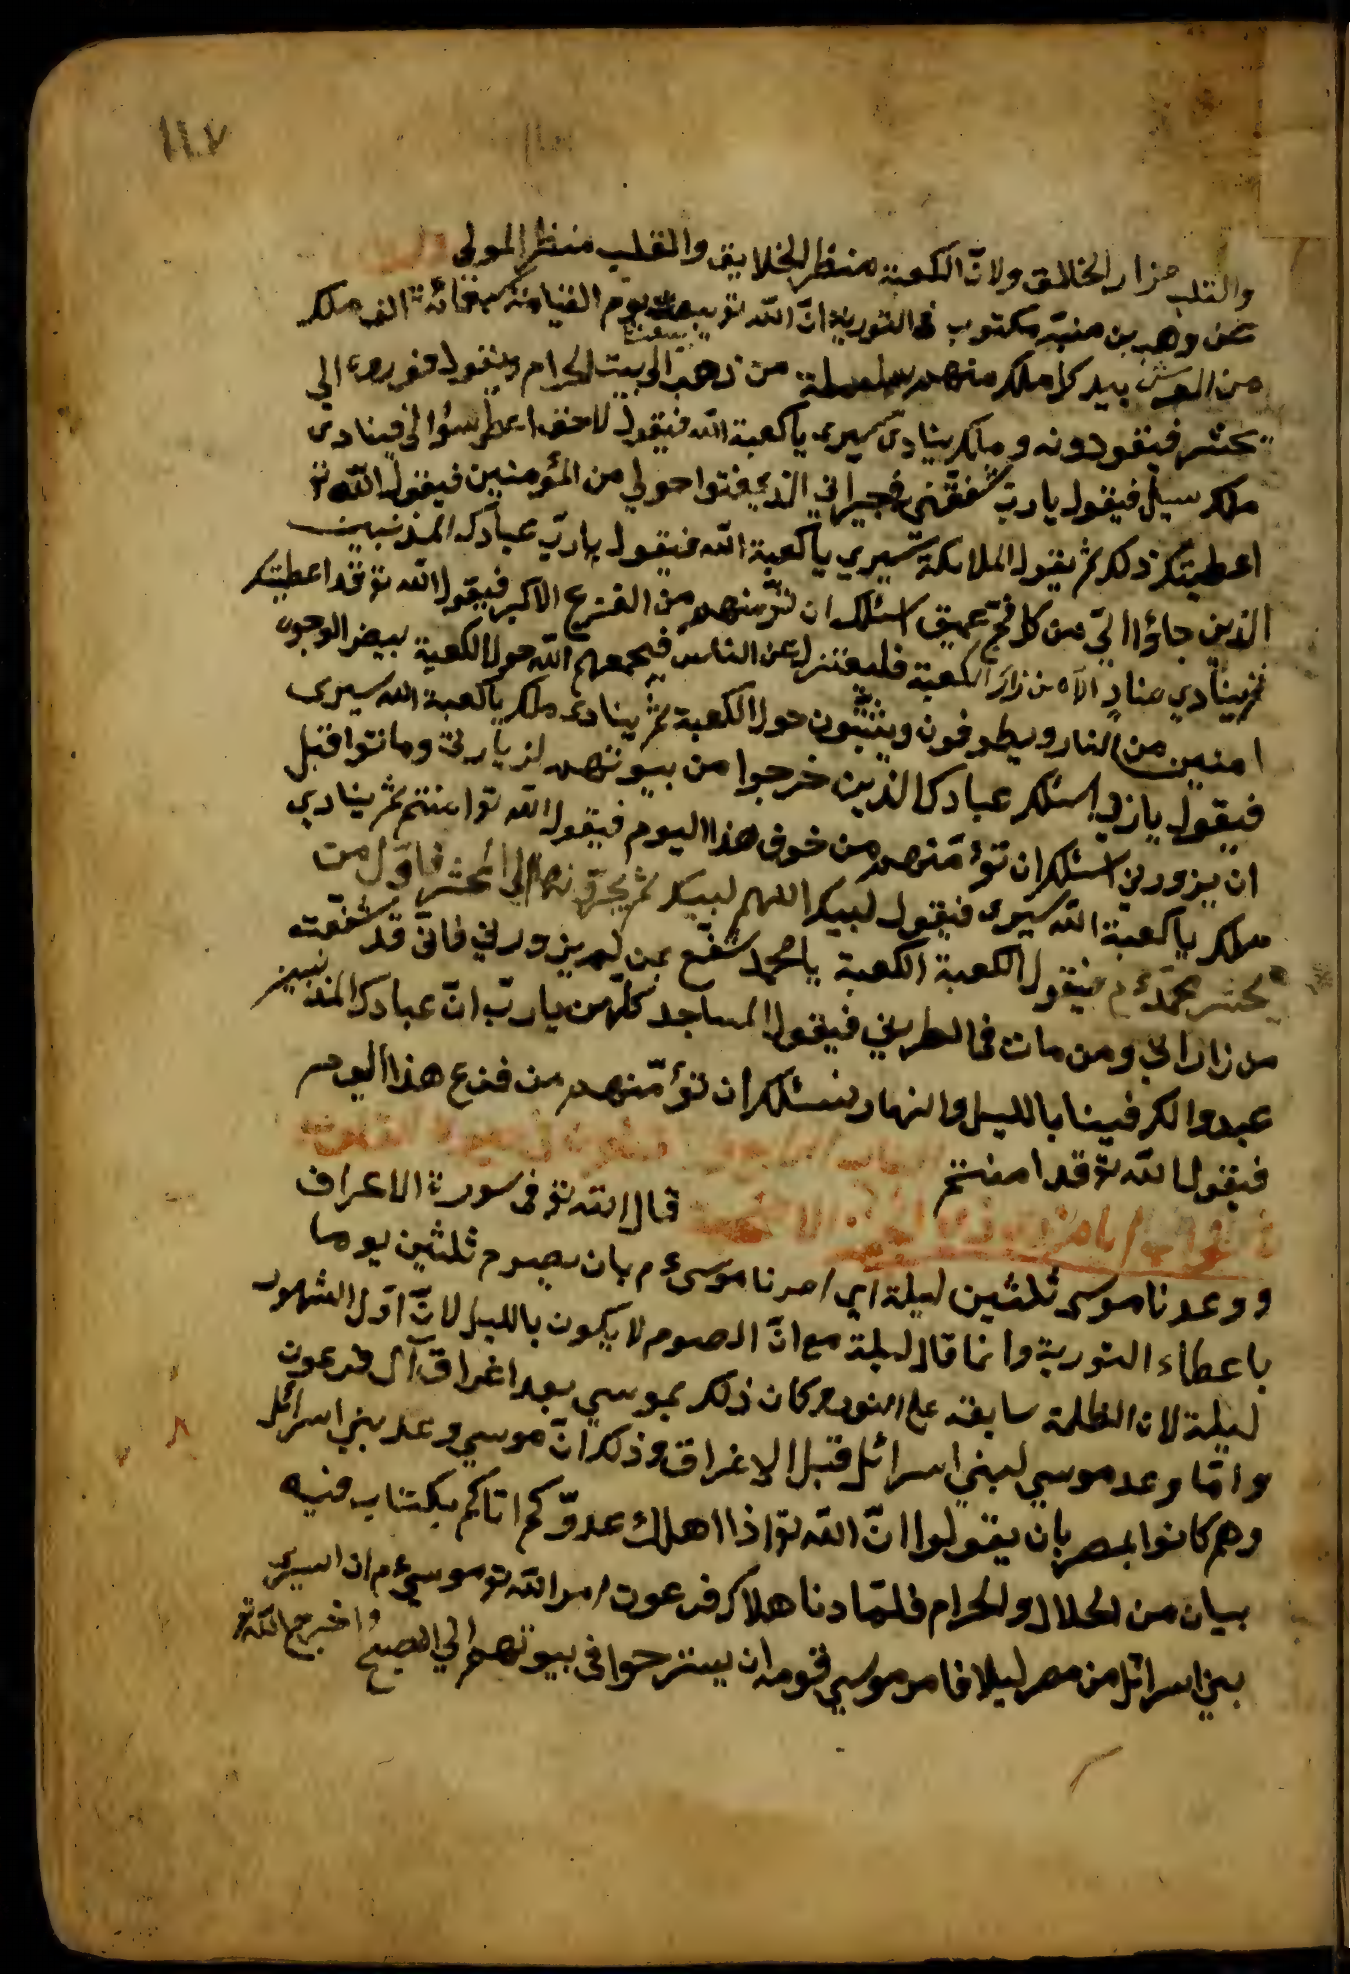 ١١٧
والقلب مزار الخالق ولانّ الكعبة منظر الخلايق والقلب منظر المولى
عن وهب بن منبّه مكتوب فى التورية انّ الله تو يبعث يوم القيامة سبعمائة الف ملك
من العرش بيد كل ملك منهم سلسلة من ذهب الى بيت الحرام ويقول الى
يحشر فيقودونه وملك ينادى سيرى يا كعبة الله فيقول لا حتى اعطى سؤالى فينادى
ملك سلى فيقول يا ربّ شفّعنى فى جيرانى الذى دفنوا حولى من المؤمنين فيقول الله تو
اعطيتك ذلك ثم يقول الملائكة سيري يا كعبة الله فيقول يا ربّ عبادك المذنبين
الذين جاؤا الىّ من كل فجّ عميق اسئلك ان تؤمنهم من الفزع الاكبر فيقول الله تو قد اعطيتك
ثم ينادي منادٍ الا من زار الكعبة فليعتزل عن الناس فيجمعهم الله حول الكعبة بيض الوجوه
امنين من النار ويطوفون ويلبّون حول الكعبة ثم ينادى ملك يا كعبة الله سيرى
فيقول يا ربّ اسئلك عبادك الذين خرجوا من بيوتهم لزيارتى وماتوا قبل
ان يزورنى اسئلك ان تؤمّنهم من خوف هذا اليوم فيقول الله تو امنتهم ثم ينادي
ملك يا كعبة الله سيرى فيقول لبيك اللهم لبيك ثم يجرّونها الى المحشر فاوّل من
يحشر محمّد ءم فيقول الكعبة الكعبة يا محمد شفّع بمن لم يزورنى فانّى قد شفّعته
من زارانى ومن مات فى الطريق فيقول المساجد كلّهن يا ربّ انّ عبادك المذنبين
عبدوا لك فينا بالليل والنهار نسئلك ان تؤمّنهم من فزع هذا اليوم
فيقول الله تو قد امنتهم
قال الله تو فى سورة الاعراف
ووعدنا موسى ثلثين ليلة اي امرنا موسى ءم بان يصوم ثلثين يوما
باعطاء التورية وانما قال ليلة مع انّ الصوم لا يكون بالليل لانّ اوّل الشهور
ليلة لان الظلمة سابقة على النور وكان ذلك بموسى بعد اغراق آل فرعون
وامّا وعد موسى لبنى اسرائل قبل الاغراق وذلك انّ موسى وعد بنى اسرائل
وهم كانوا بمصر بان يقولوا انّ الله تو اذا اهلك عدوّكم اتاكم بكتاب فيه
بيان من الحلال والحرام فلمّا دنا هلاك فرعون امر الله تو موسى ءم ان اسيرى
بنى اسرائل من مصر ليلا فامر موسى قومه ان يسترحوا فى بيوتهم الى الصبح اخرج الله تو